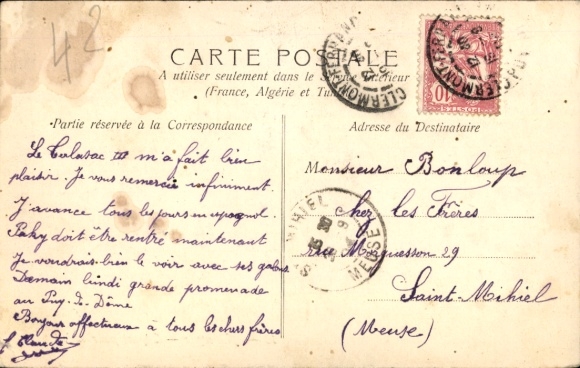 42
CARTE POSTALE
A utiliser seulement dans le Service Intérieur
(France, Algérie et Tunisie)
Partie réservée à la Correspondance
Adresse du Destinataire
Le m'a fait bien
plaisir. Je vous remercie infiniment.
J'avance tous les jours en espagnol.
Paky doit être rentré maintenant
Je voudrais bien le voir avec ses galons
Demain lundi grande promenade
au Puy-de-Dôme
Bonjour affectueux à tous les chers frères
Monsieur Bonloup
Chez les Frères
rue 29
Saint-Mihiel
(Meuse)
CLERMONT-FERRAND
10
POSTES
CLERMONT-FERRAND
ST MIHIEL
MEUSE